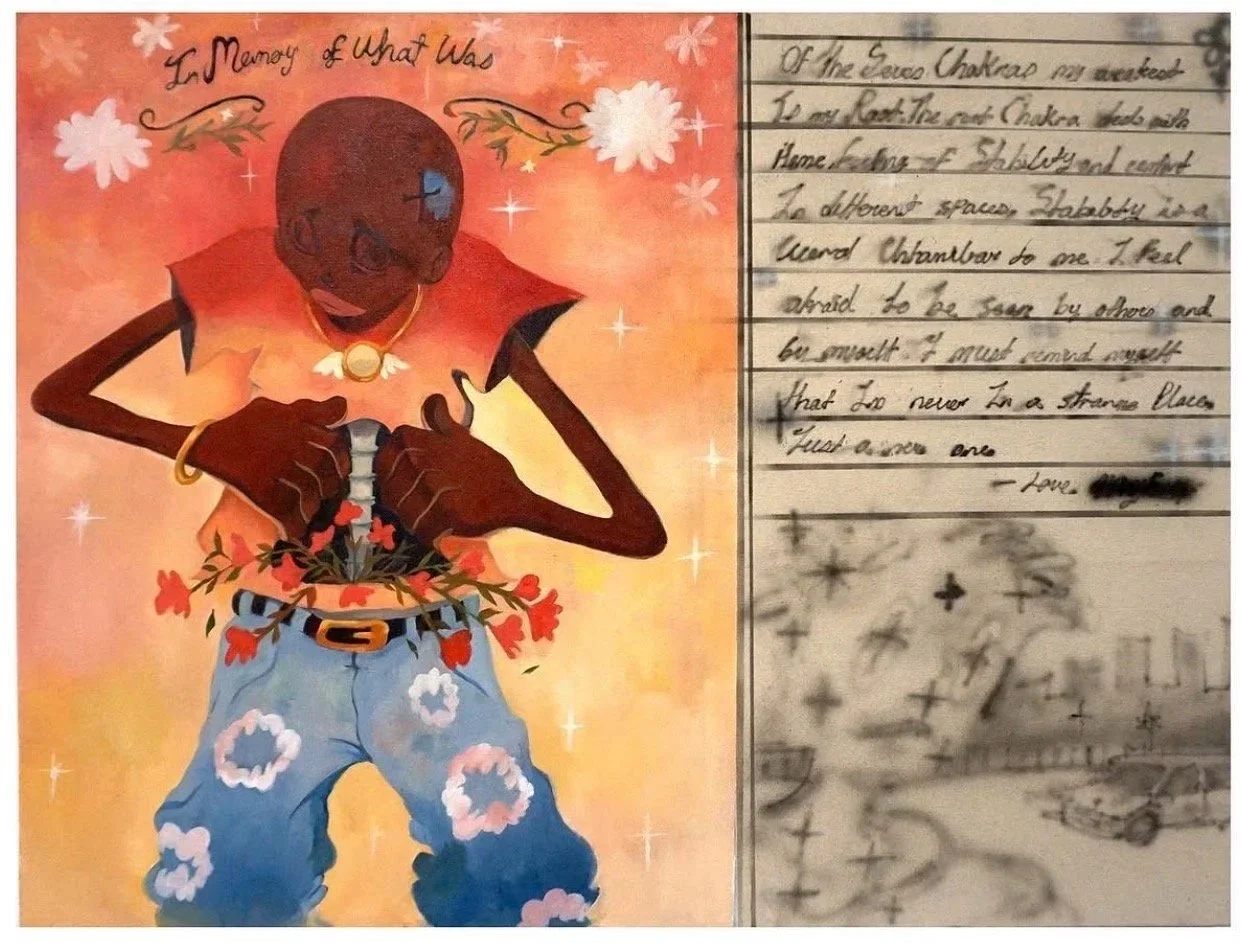 In Memory of What Was
Of the Seven Chakras my weakest
Is my Root. The root Chakra deals with
Home, feeling of Stability and comfort
In different spaces. Stability is a
weird to me. I Feel
afraid to be seen by others and
by myself. I must remind myself
that Im never In a strange Place
Just a new one
- Love,